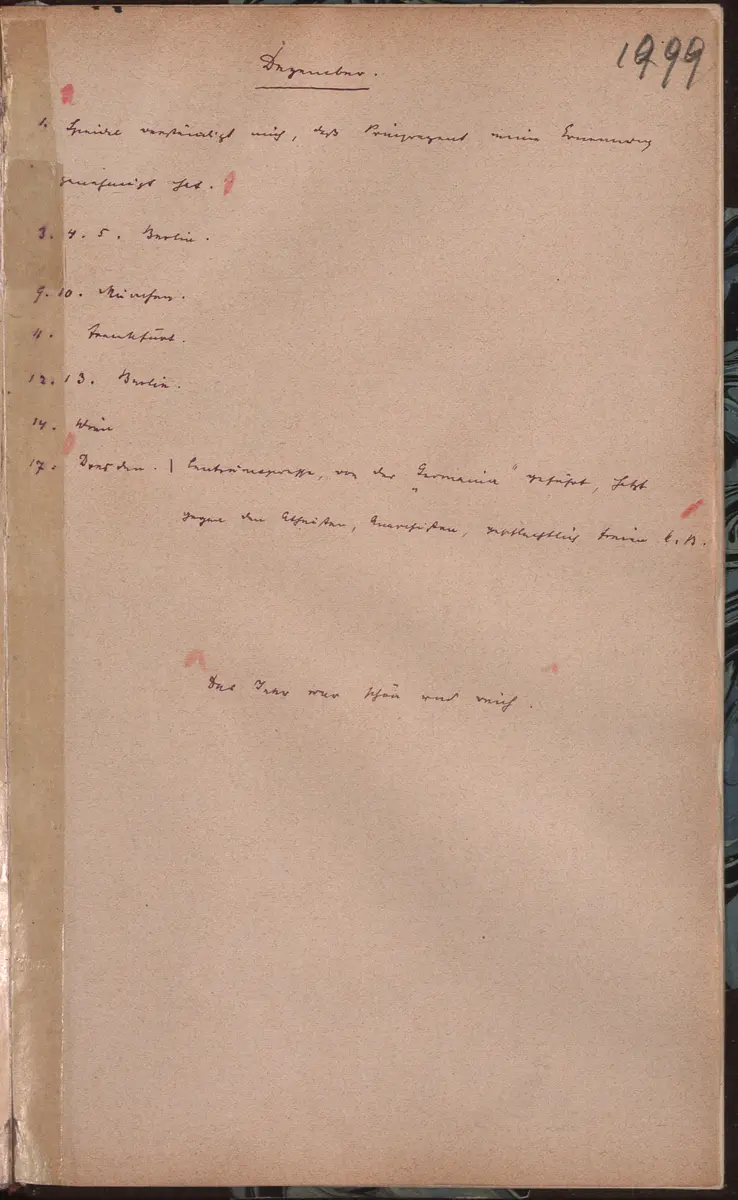 1999
Dezember.
1. Speidel verständigt mich, daß Prinzregent meine Ernennung
genehmigt hat.
3. 4. 5. Berlin.
9. 10. München.
11. Frankfurt.
12. 13. Berlin.
14. Wien
17. Dresden. | Centrumspresse, von der „Germania“ geführt, hetzt
gegen den Atheisten, Anarchisten, H. B.
Das Jahr war schön und reich.